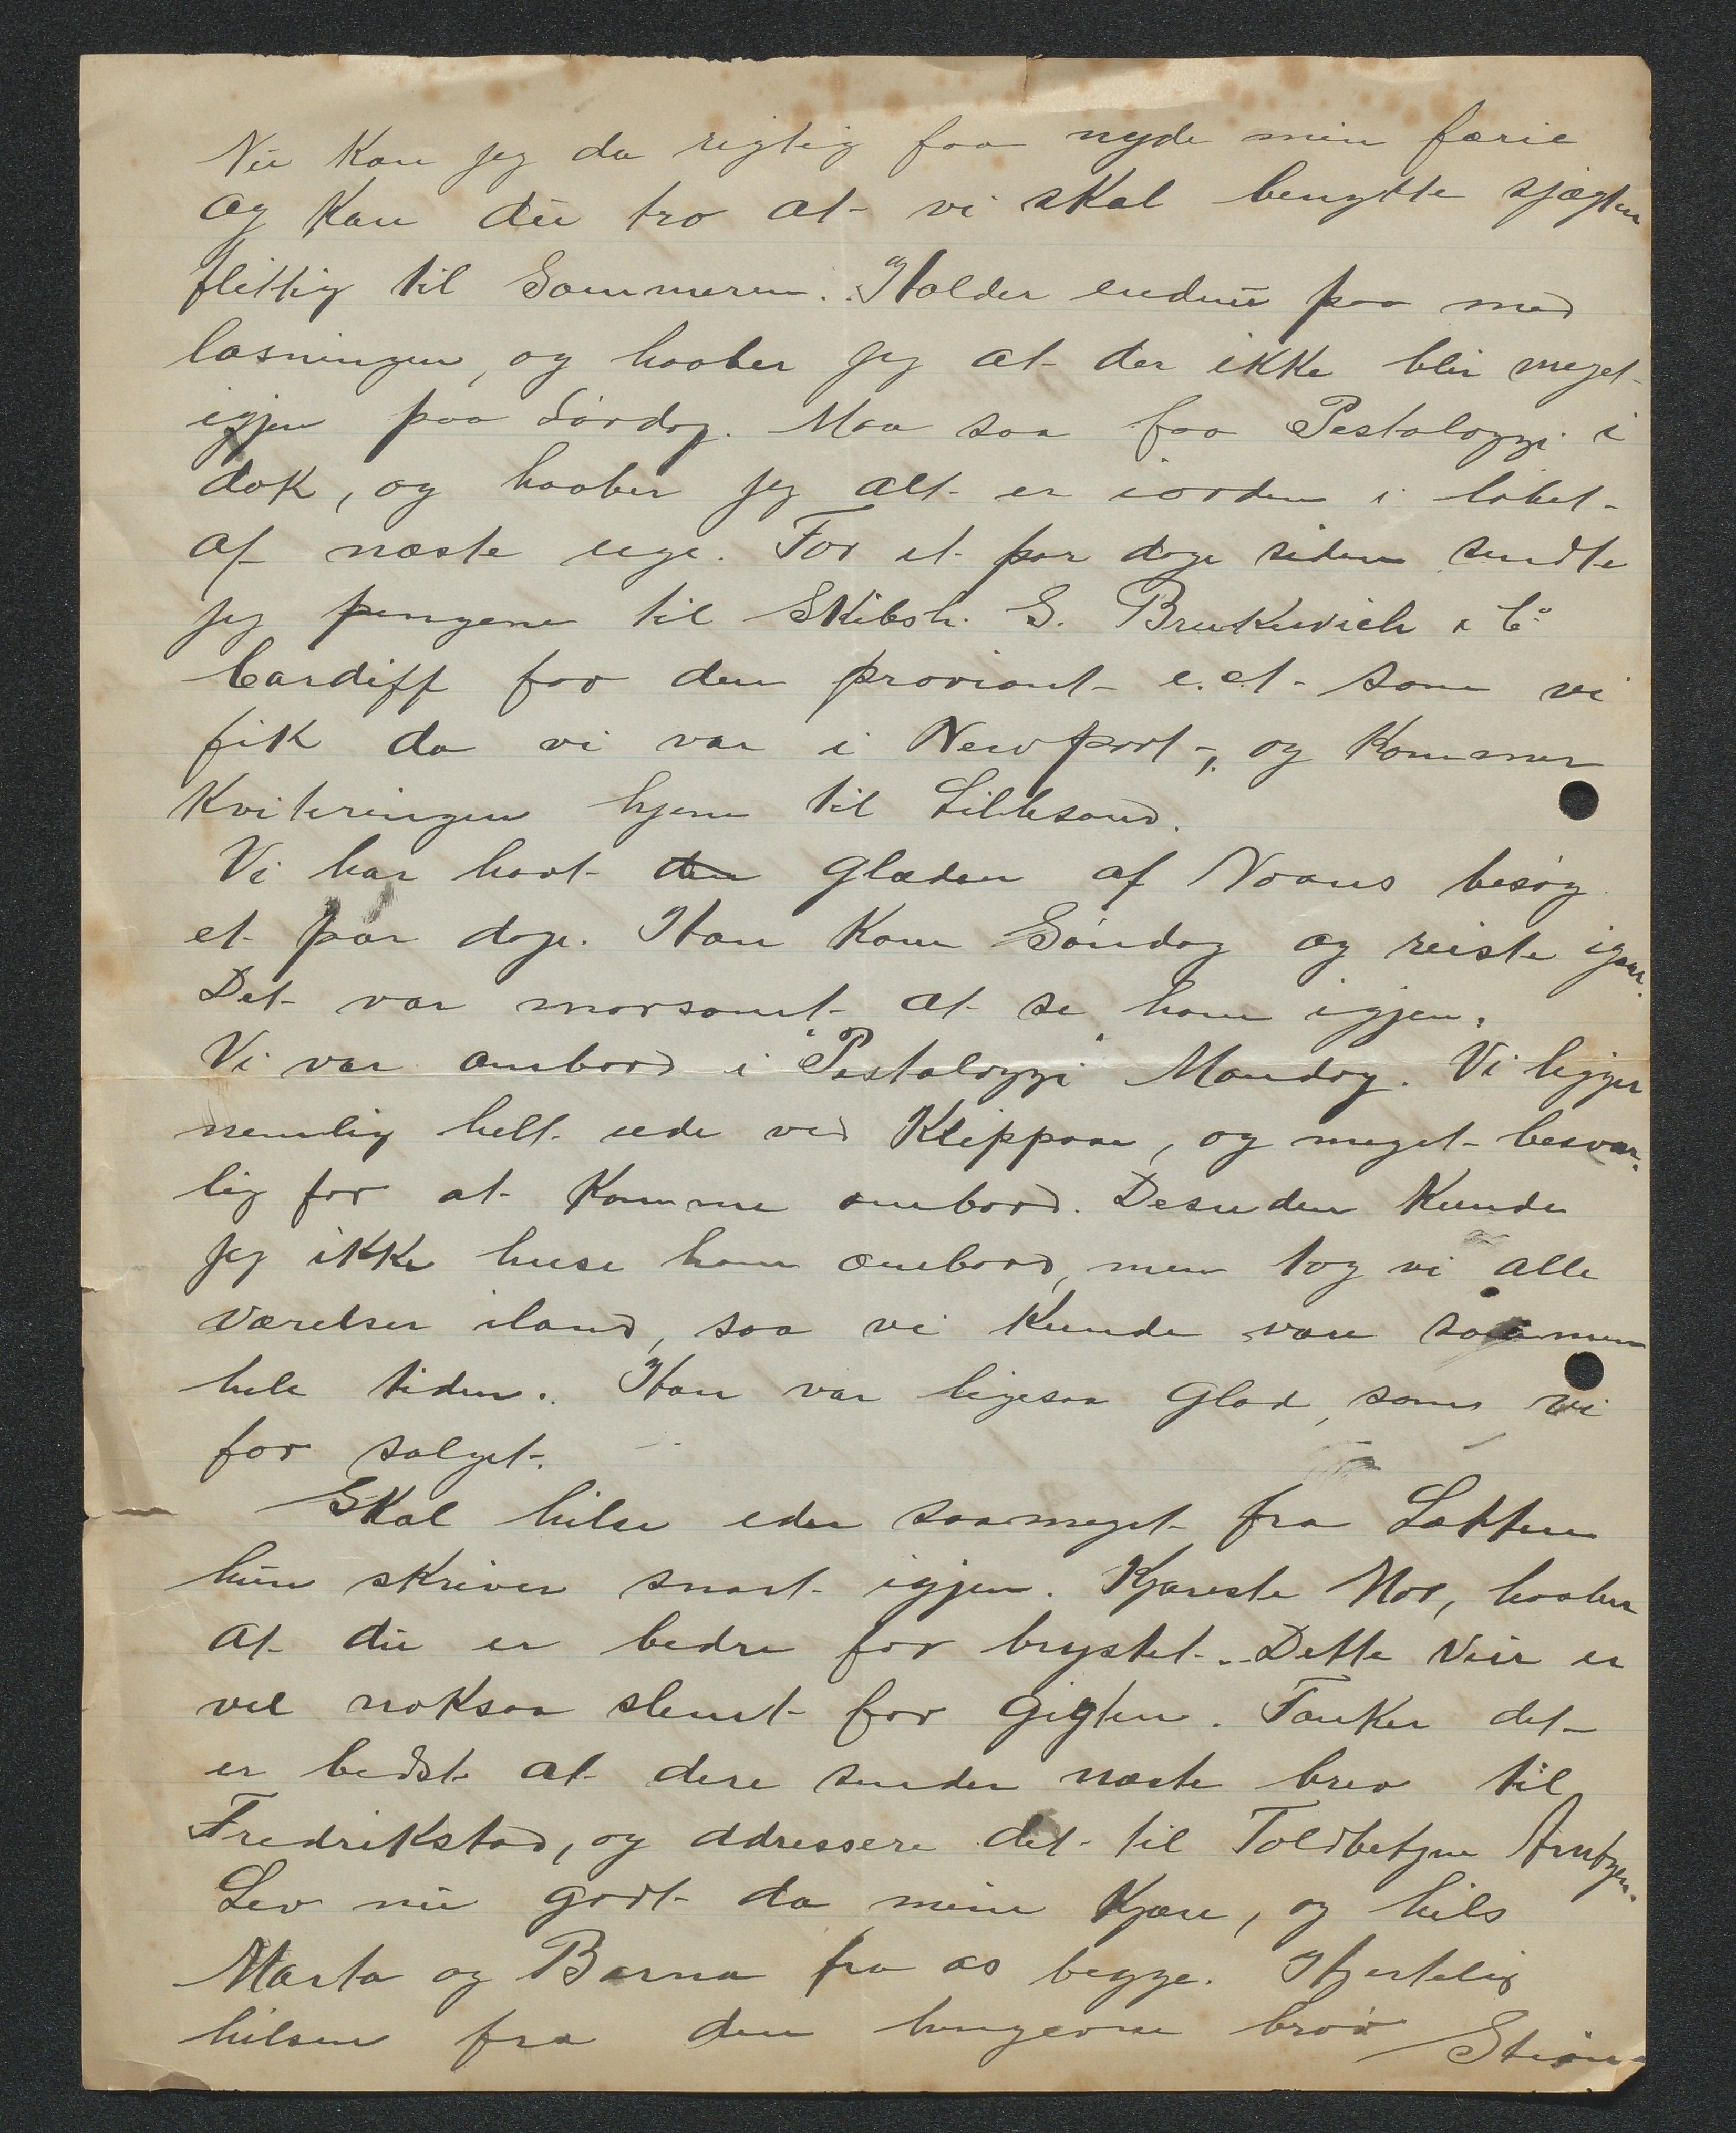 Nu kan jeg da rigtig faa nyde min færie
og kan du tro at vi skal benytte sjægten
flittig til Sommeren. Holder endnu paa med
lasningen, og haaber jeg at der ikke blir meget
igjen paa Lördag. Maa saa faa Pestalozzi i
dok, og haaber jeg alt er iorden i löbet
af næste uge. For et par dage siden sendte
jeg pengene til Skibsh. S. & Co
Cardiff for den proviant e.ct. som vi
fik da vi var i Newport, og kommer
kviteringen hjem til Lillesand.
Vi har havt den glæden af besög
et par dage. Han kom Söndag og reiste igaar.
Det var morsomt at se ham igjen.
Vi var ombord i "Pestalozzi" Mandag. Vi ligger
nemlig helt ude ved Klippan, og meget besvær-
lig for at komme ombord. Desuden kunde
jeg ikke huse ham ombord, men tog vi alle
værelser iland, saa vi kunde være sammen
hele tiden. Han var ligesaa glad, som vi
for salget.
Skal hilse eder saameget fra
hun skriver snart igjen. Kjæreste Mor, haaber
at du er bedre for brystet. Dette Veir er
vel noksaa slemt for gigten. Tænker det
er bedst at dere sender næste brev til
Fredrikstad, og adressere det til Toldbetjen Arntzen.
Lev nu godt da mine Kjære, og hils
Marta og Barna fra os begge. Hjertelig
hilsen fra den hengivne bror